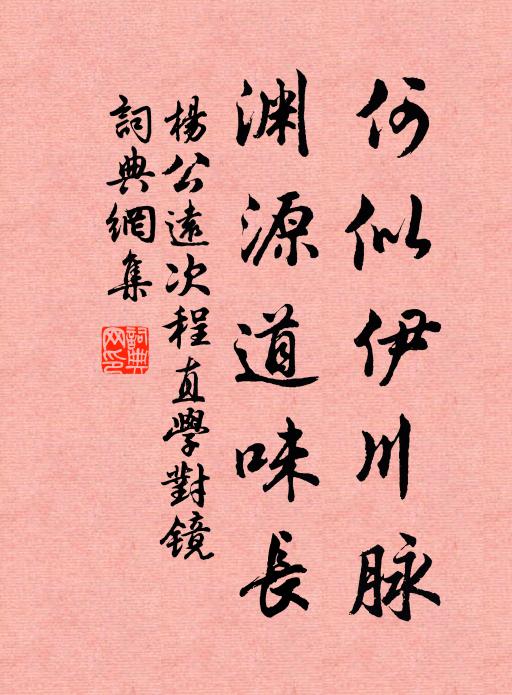 何似伊川脉
渊源道味長
楊公遠次程直學對镜
詞典網集
詞典网印